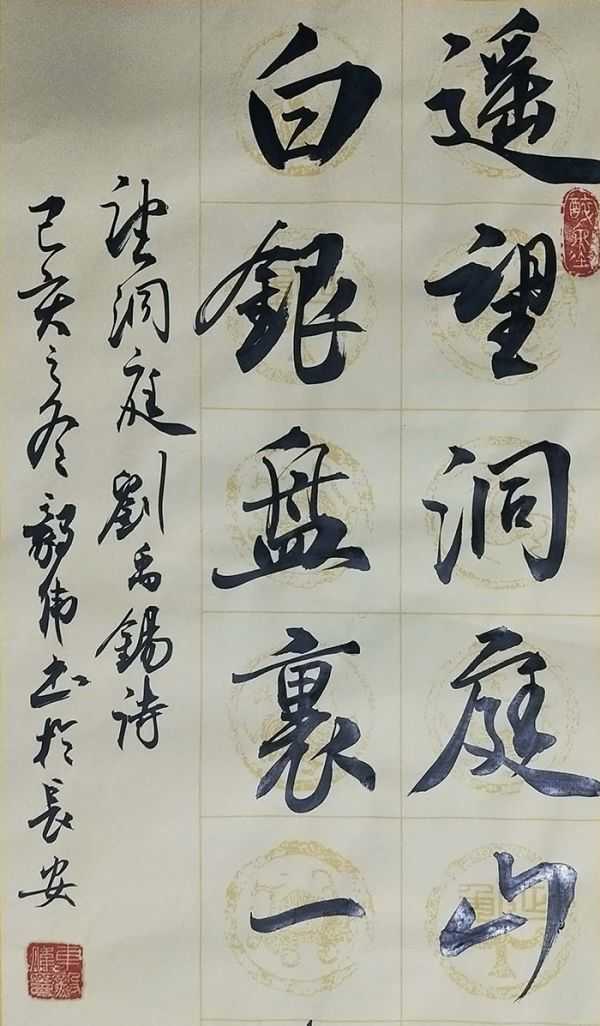 遥望洞庭山
白銀盘裏一
望洞庭 劉禹錫詩
己亥之冬 毅伟书於長安